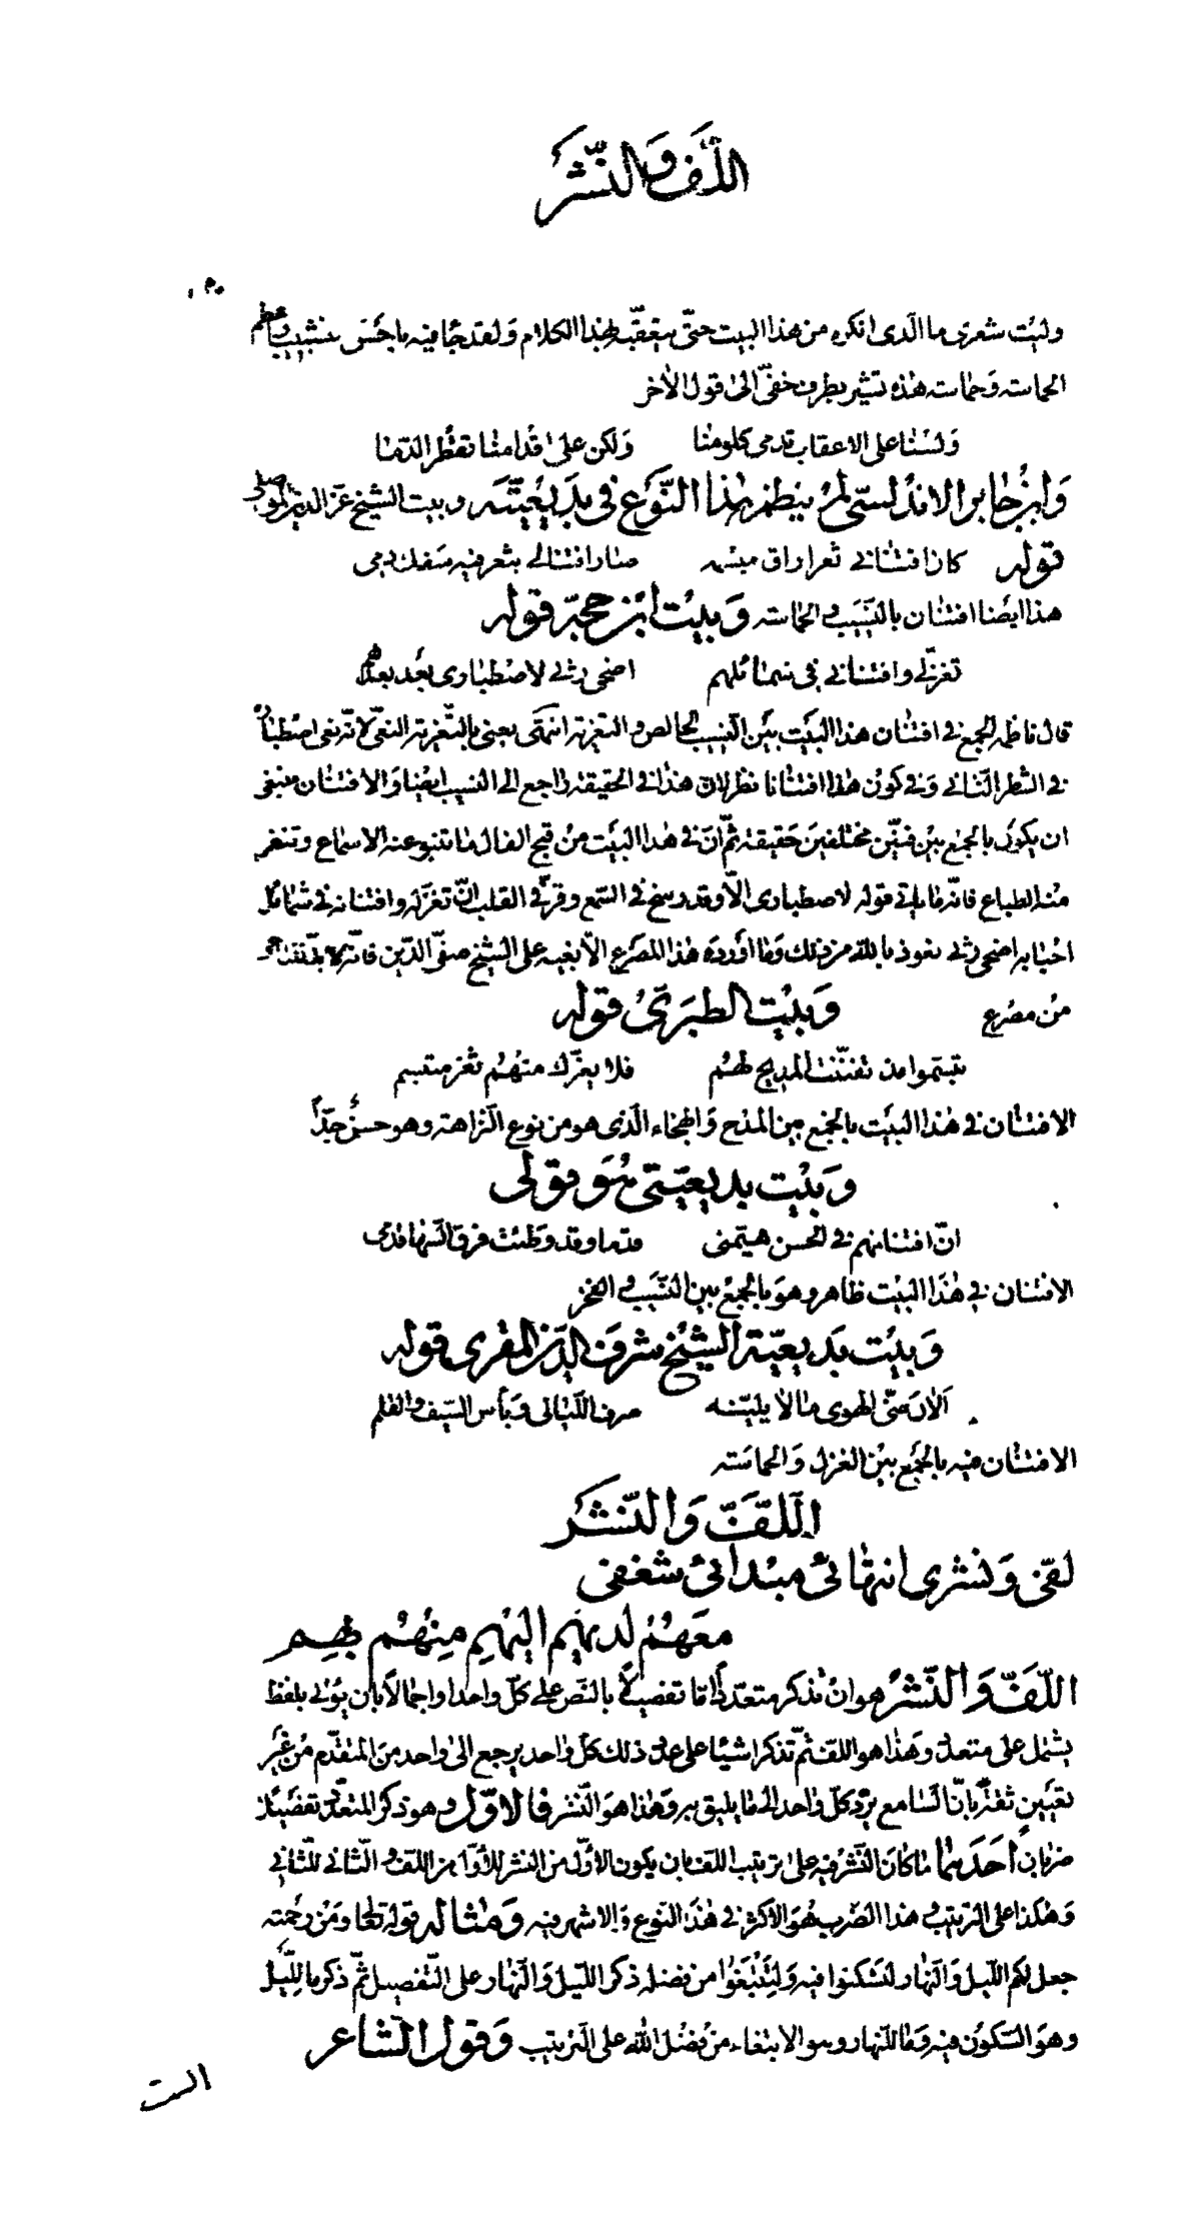 اللف والنشر
وليت شعرى ما الذى انكره من هذا البيت حتى يتعقبه بهذا الكلام ولقد جاء فيه باحسن
الحماسه وحماسته هذه تشير بطرف خفى الى قول الاخر
ولسنا على الاعقاب تدمى كلومنا ولكن على اقدامنا تقطر الدما
وابن جابر الاندلسى لم ينظم هذا النوع فى بديعيته وبيت الشيخ عز الدين الموصلى
قوله كان افتنانى بثغر راق مبسمه صار افتنانى بثغر فيه سفك دمى
هذا ايضا افتنان بالنسيب والحماسه وبيت ابن حجة قوله
تغزلى وافتنانى فى شمائلهم اضحى رثى لاصطبارى بعد بعدهم
قال ناظمه الجمع فى افتنان هذا البيت بين النسيب الخالص والتعزيه انتهى يعنى بالتعزيه النعى لانه نعى اصطباره
فى الشطر الثانى وفى كون هذا افتنانا نظر لان هذا فى الحقيقه راجع الى النسيب ايضا والافتنان ينبغى
ان يكون بالجمع بين فنين مختلفين حقيقه ثم ان فى هذا البيت من قبح الفال ما تنبو عنه الاسماع وتنفر
منه الطباع فانه ما ياتى قوله لاصطبارى الا وقد رسخ فى السمع وقر فى القلب ان تغزله وافتنانه فى شمائل
احبابه اضحى رثى نعوذ بالله من ذلك وما اورده هذا المصرع الا بغيه على الشيخ صفى الدين فانه
من مصرع وبيت الطبرى قوله
تبسموا مذ تفننت المديح لهم فلا يغرك منهم ثغر مبتسم
الافتنان فى هذا البيت بالجمع بين المدح والهجاء الذى هو من نوع النزاهة وهو حسن جدا
وبيت بديعيتى هو قولى
ان افتنانهم فى الحسن هيمنى قدما وقد وطئت فرق السها قدمى
الافتنان فى هذا البيت ظاهر وهو بالجمع بين النسيب والفخر
وبيت بديعية الشيخ شرف الدين المقرى قوله
الان منى الهوى ما لا يلينه صرف الليالى وباس السيف والقلم
الافتنان فيه بالجمع بين الغزل والحماسه
اللف والنشر
لفى ونشرى انتهائى مبدائى شغفى
معهم لديهم اليهم منهم بهم
اللف والنشر هو ان تذكر متعددا اما تفصيلا بالنص على كل واحد او اجمالا بان يؤتى بلفظ
يشتمل على متعدد وهذا هو اللف ثم تذكر اشياء على عدد ذلك كل واحد يرجع الى واحد من المتقدم من غير
تعيين ثقة بان السامع يرد كل واحد الى ما يليق به وهذا هو النشر فالاول وهو ذكر المتعدد تفصيلا
ضربان احدهما ما كان النشر فيه على ترتيب اللف بان يكون الاول من النشر للاول من اللف والثانى للثانى
وهكذا على الترتيب وهذا الضرب هو الاكثر فى هذا النوع والاشهر فيه ومثاله قوله تعالى ومن رحمته
جعل لكم الليل والنهار لتسكنوا فيه ولتبتغوا من فضله ذكر الليل والنهار على التفصيل ثم ذكر ما لليل
وهو السكون فيه وما للنهار وهو الابتغاء من فضل الله على الترتيب وقول الشاعر
الست